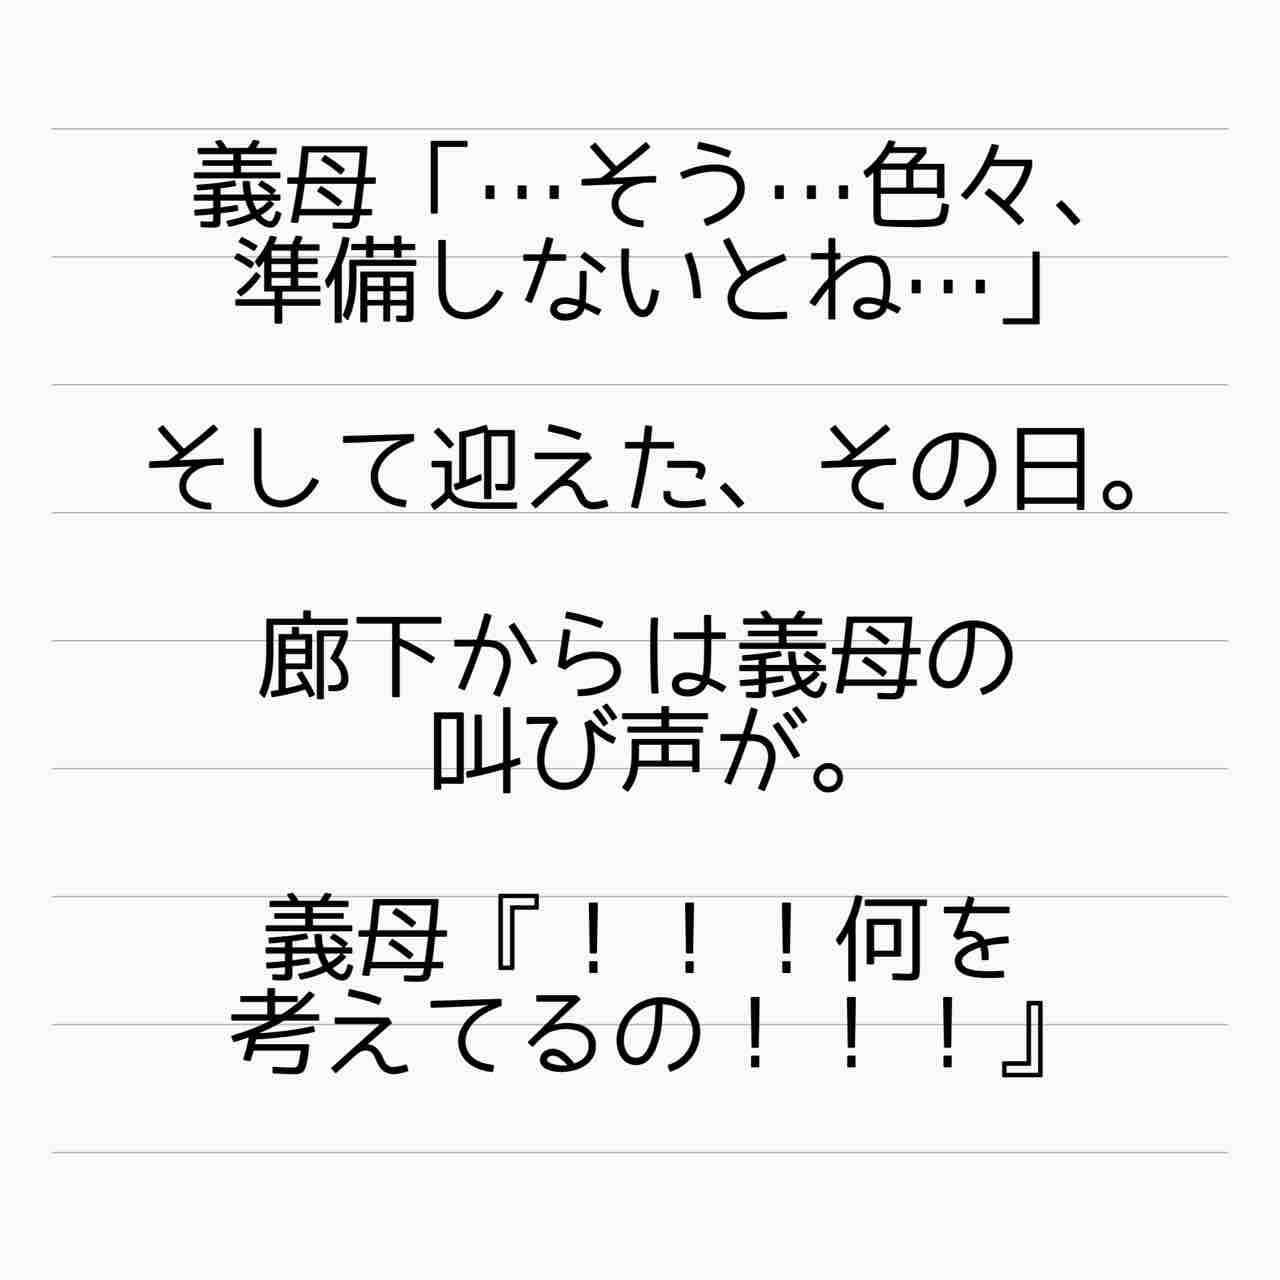 義母「…そう…色々、
準備しないとね…」
そして迎えた、その日。
廊下からは義母の
叫び声が。
義母『！！！何を
考えてるの！！！』